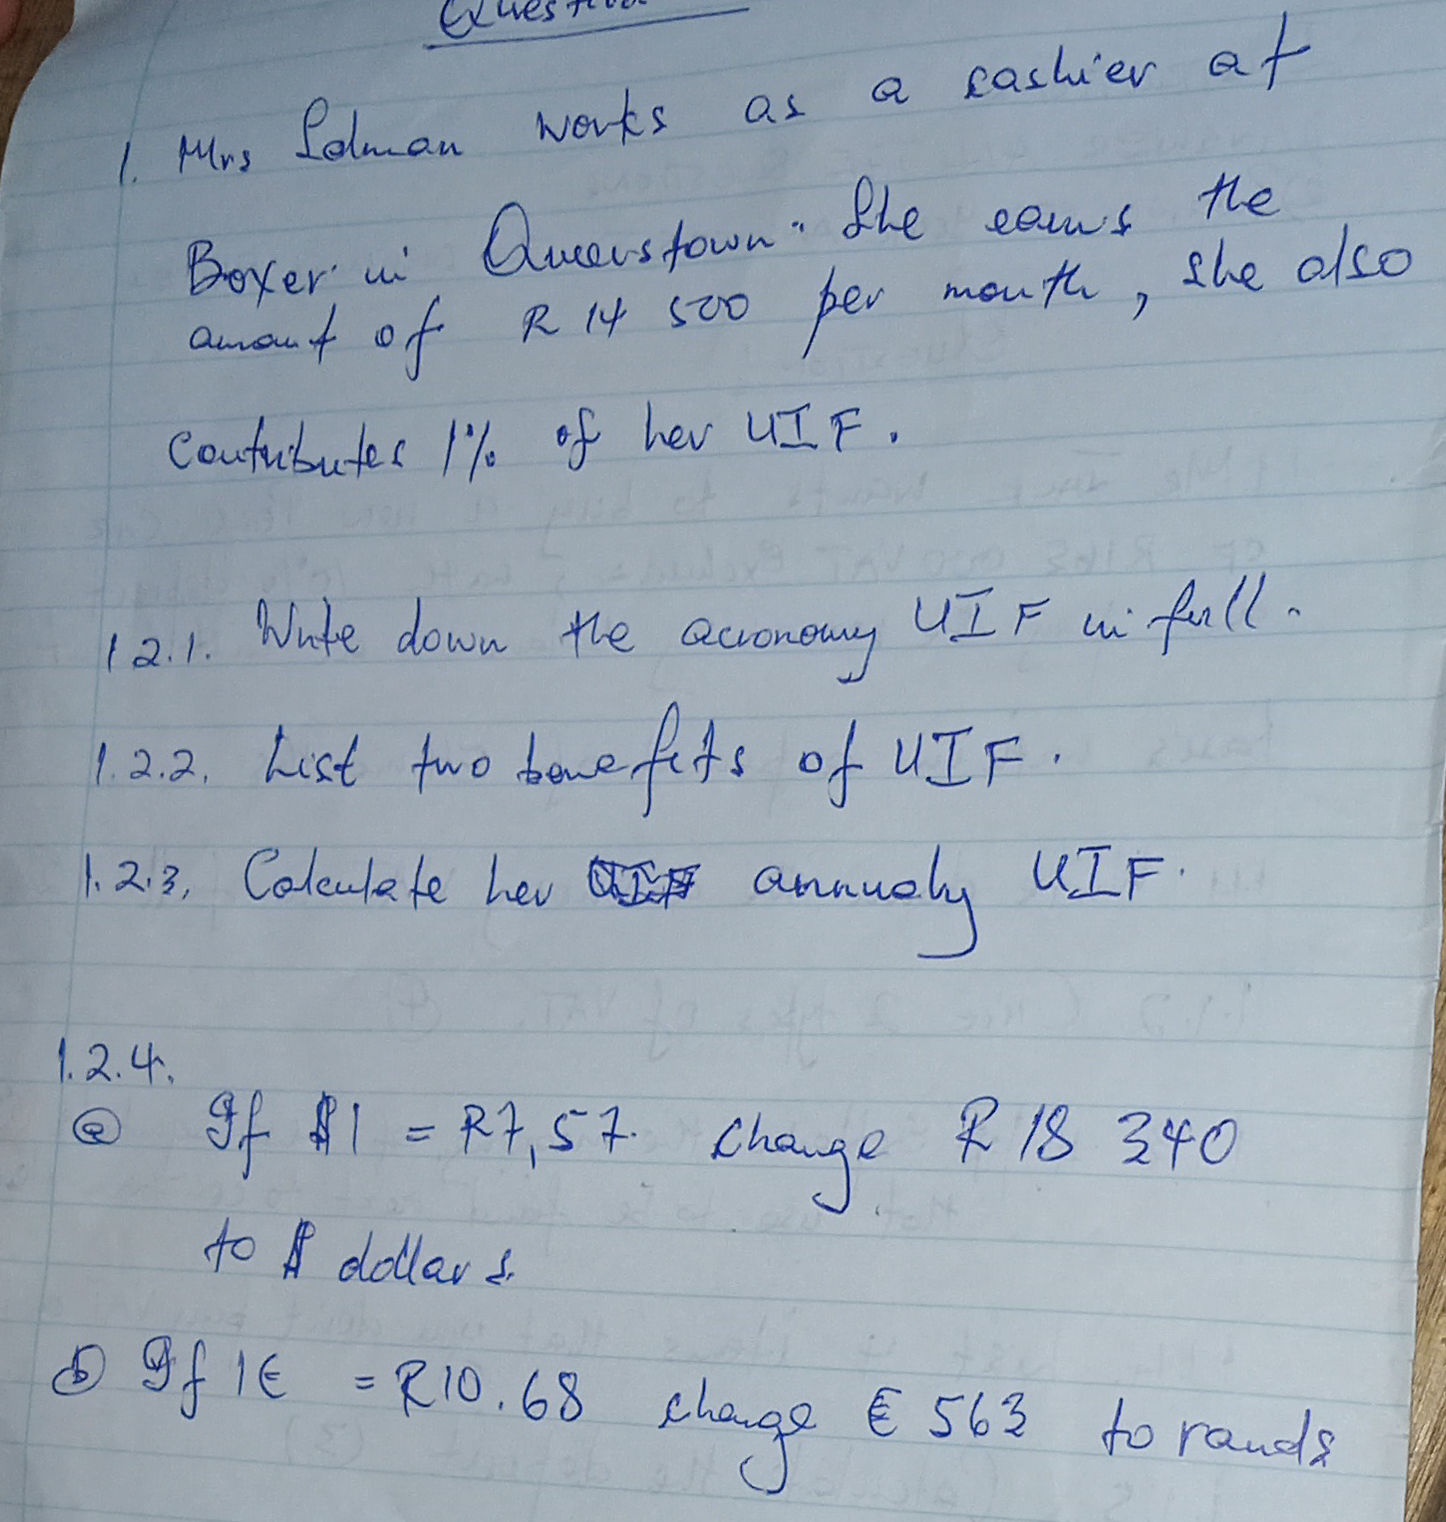 Question
1. Mrs Solman works as a cashier at
Boxer in Queenstown. She earns the
amount of R 14 500 per month, she also
contributes 1% of her UIF.
1 2.1. Write down the acronomy UIF in full.
1.2.2. List two benefits of UIF.
1.2.3. Calculate her annualy UIF.
1.2.4.
(a) If $1 = R7,57. change R 18 340
to $ dollars.
(b) If 1€ = R10.68 change € 563 to rands